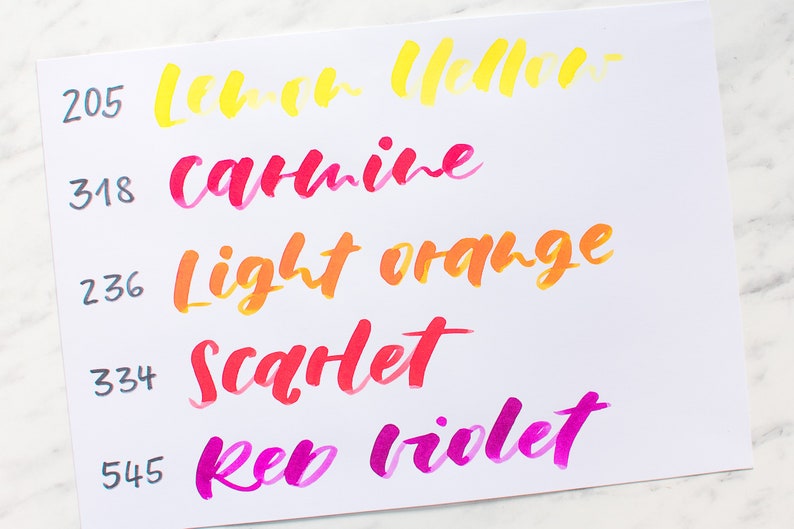 205 Lemon Yellow
318 Carmine
236 Light orange
334 Scarlet
545 Red Violet